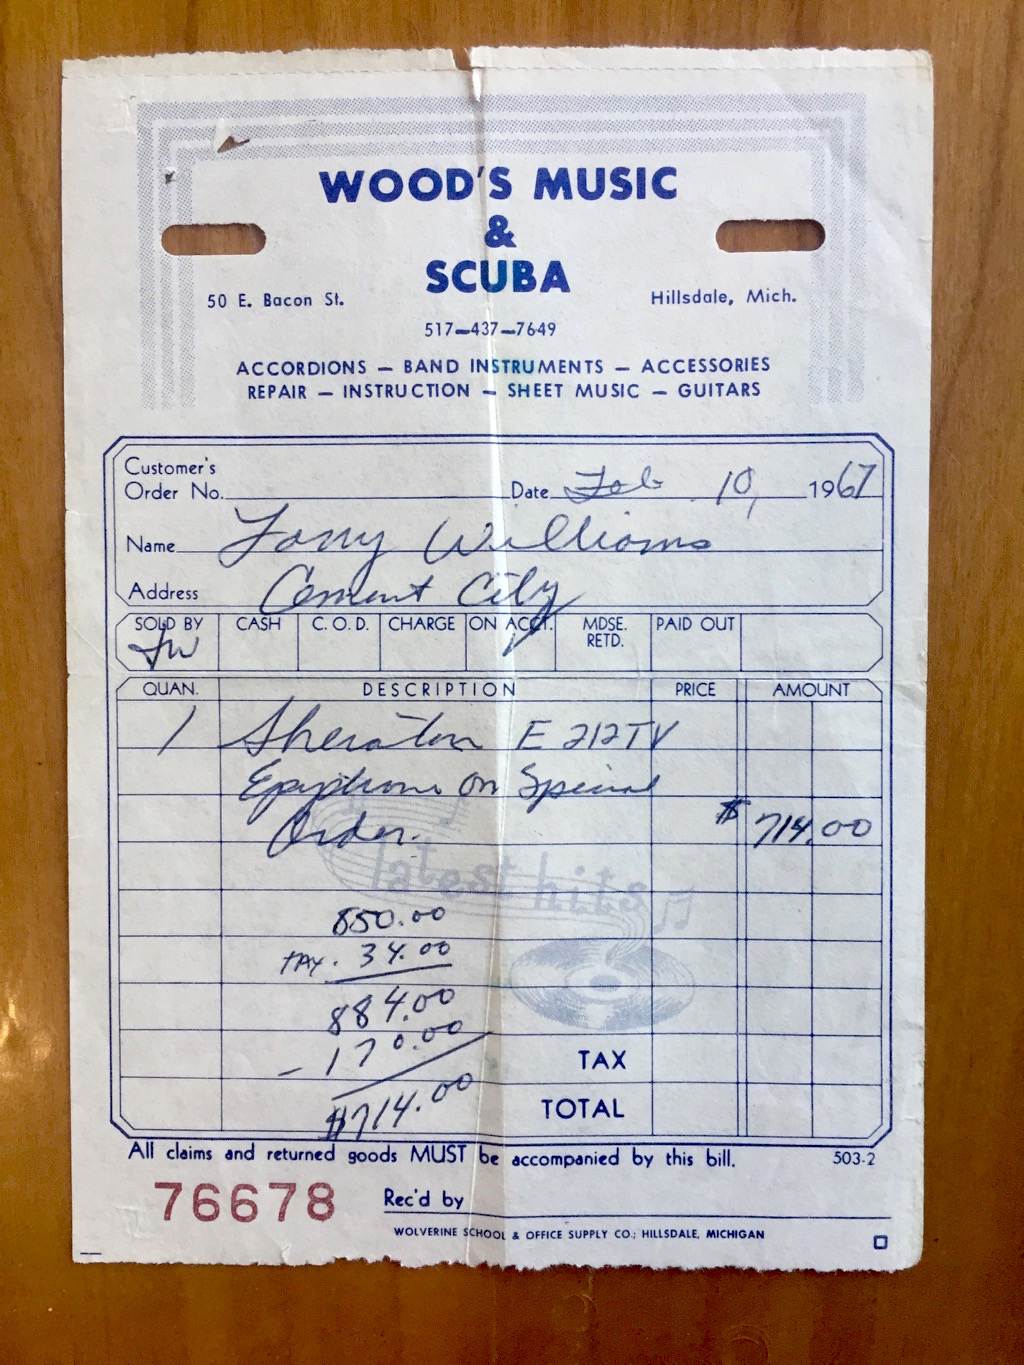 WOOD'S MUSIC
&
SCUBA
50 E. Bacon St. Hillsdale, Mich.
517-437-7649
ACCORDIONS — BAND INSTRUMENTS — ACCESSORIES
REPAIR — INSTRUCTION — SHEET MUSIC — GUITARS
Customer's
Order No. Date Feb 10, 1967
Name Tony Williams
Address Cement City
SOLD BY CASH C. O. D. CHARGE ON ACCT. MDSE. RETD. PAID OUT
QUAN. DESCRIPTION PRICE AMOUNT
1 Sheraton E 212TV
Epyphone on Special
Order. $ 714.00
latest hits
850.00
TAX. 34.00
884.00
- 170.00 TAX
$714.00 TOTAL
All claims and returned goods MUST be accompanied by this bill. 503-2
76678 Rec'd by
WOLVERINE SCHOOL & OFFICE SUPPLY CO.; HILLSDALE, MICHIGAN